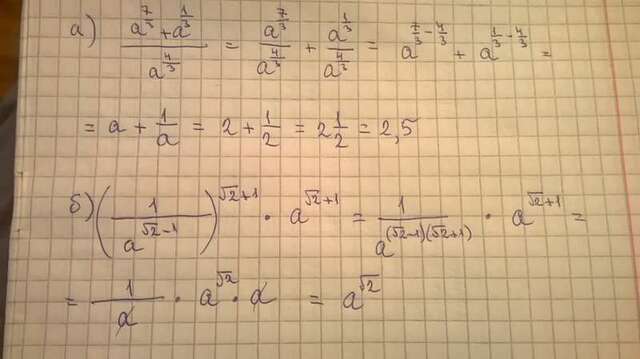 а) (a^(7/3) + a^(1/3)) / a^(4/3) = a^(7/3) / a^(4/3) + a^(1/3) / a^(4/3) = a^(7/3 - 4/3) + a^(1/3 - 4/3) =
= a + 1/a = 2 + 1/2 = 2 1/2 = 2,5
б) (1 / a^(√2-1))^(√2+1) · a^(√2+1) = 1 / a^((√2-1)(√2+1)) · a^(√2+1) =
= 1/a · a^(√2) · a = a^(√2)